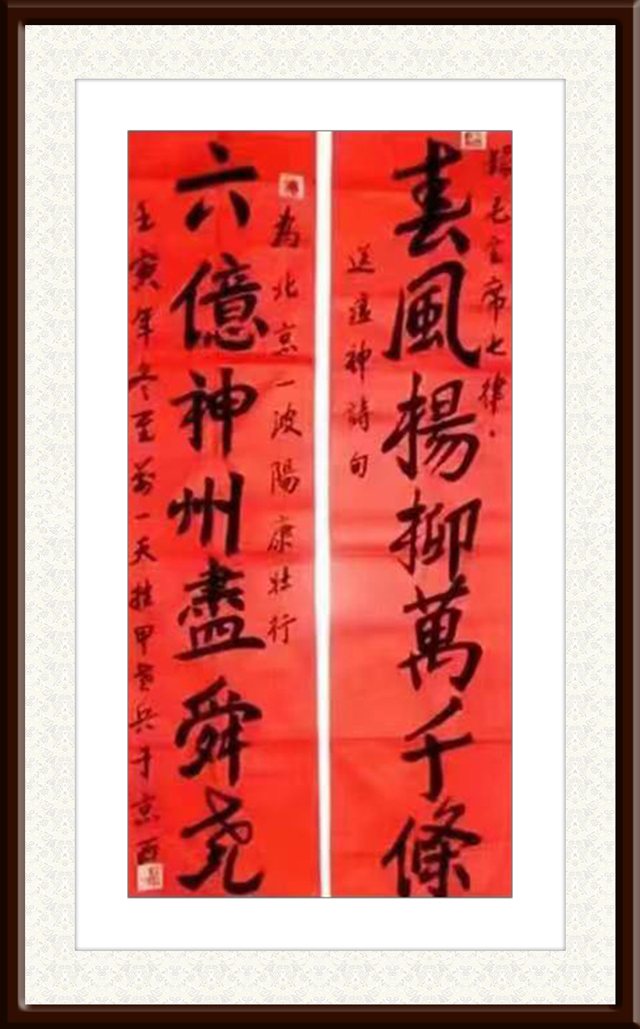 録毛主席七律·
春風揚柳萬千條
送瘟神詩句
為北京一波陽康壮行
六億神州盡舜尧
壬寅年冬至前一天挂甲兵于京西